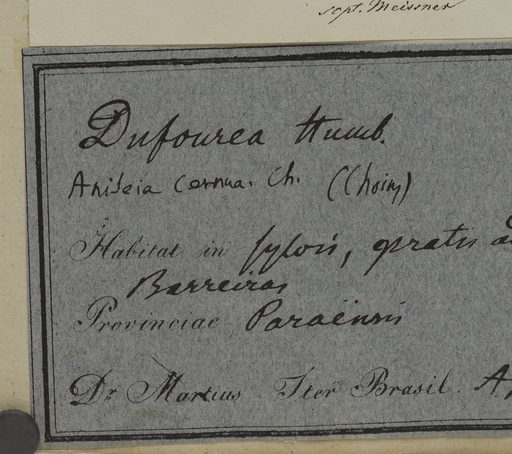 scpt. Meissner
Dufourea Humb.
Aniseia Cernua. Ch. (Choisy)
Habitat in sylvis, pratis ad
Barreiras
Provinciae Paraënsis
Dr Martius Iter Brasil. Ap